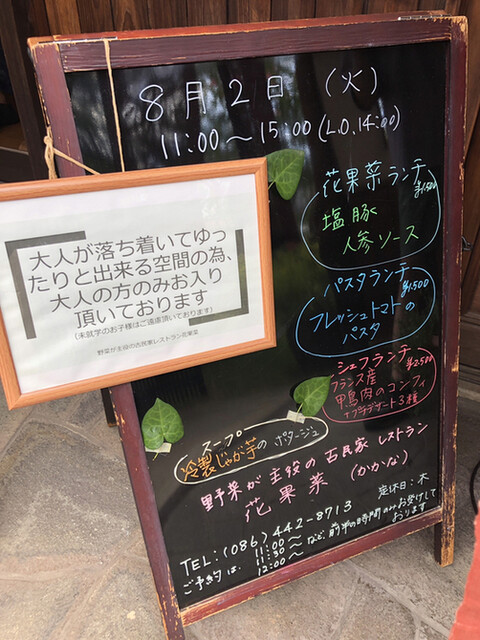 8月2日 (火)
11:00～15:00(L.O.14:00)
花果菜ランチ
¥1,500
塩豚
人参ソース
パスタランチ
¥1,500
フレッシュトマトの
パスタ
シェフランチ
¥2,500
フランス産
鴨肉のコンフィ
+プチデザート3種
スープ
冷製じゃが芋のポタージュ
野菜が主役の古民家レストラン
花果菜 (かかな)
TEL:(086)442-8713
定休日:木
ご予約は、11:00～
11:30～
12:00～
など、前半の時間のみお受けして
おります
大人が落ち着いてゆっ
たりと出来る空間の為、
大人の方のみお入り
頂いております
(未就学のお子様はご遠慮頂いております)
野菜が主役の古民家レストラン花果菜